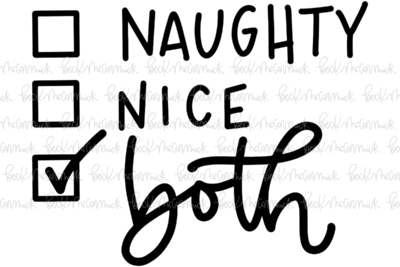 NAUGHTY
NICE
both